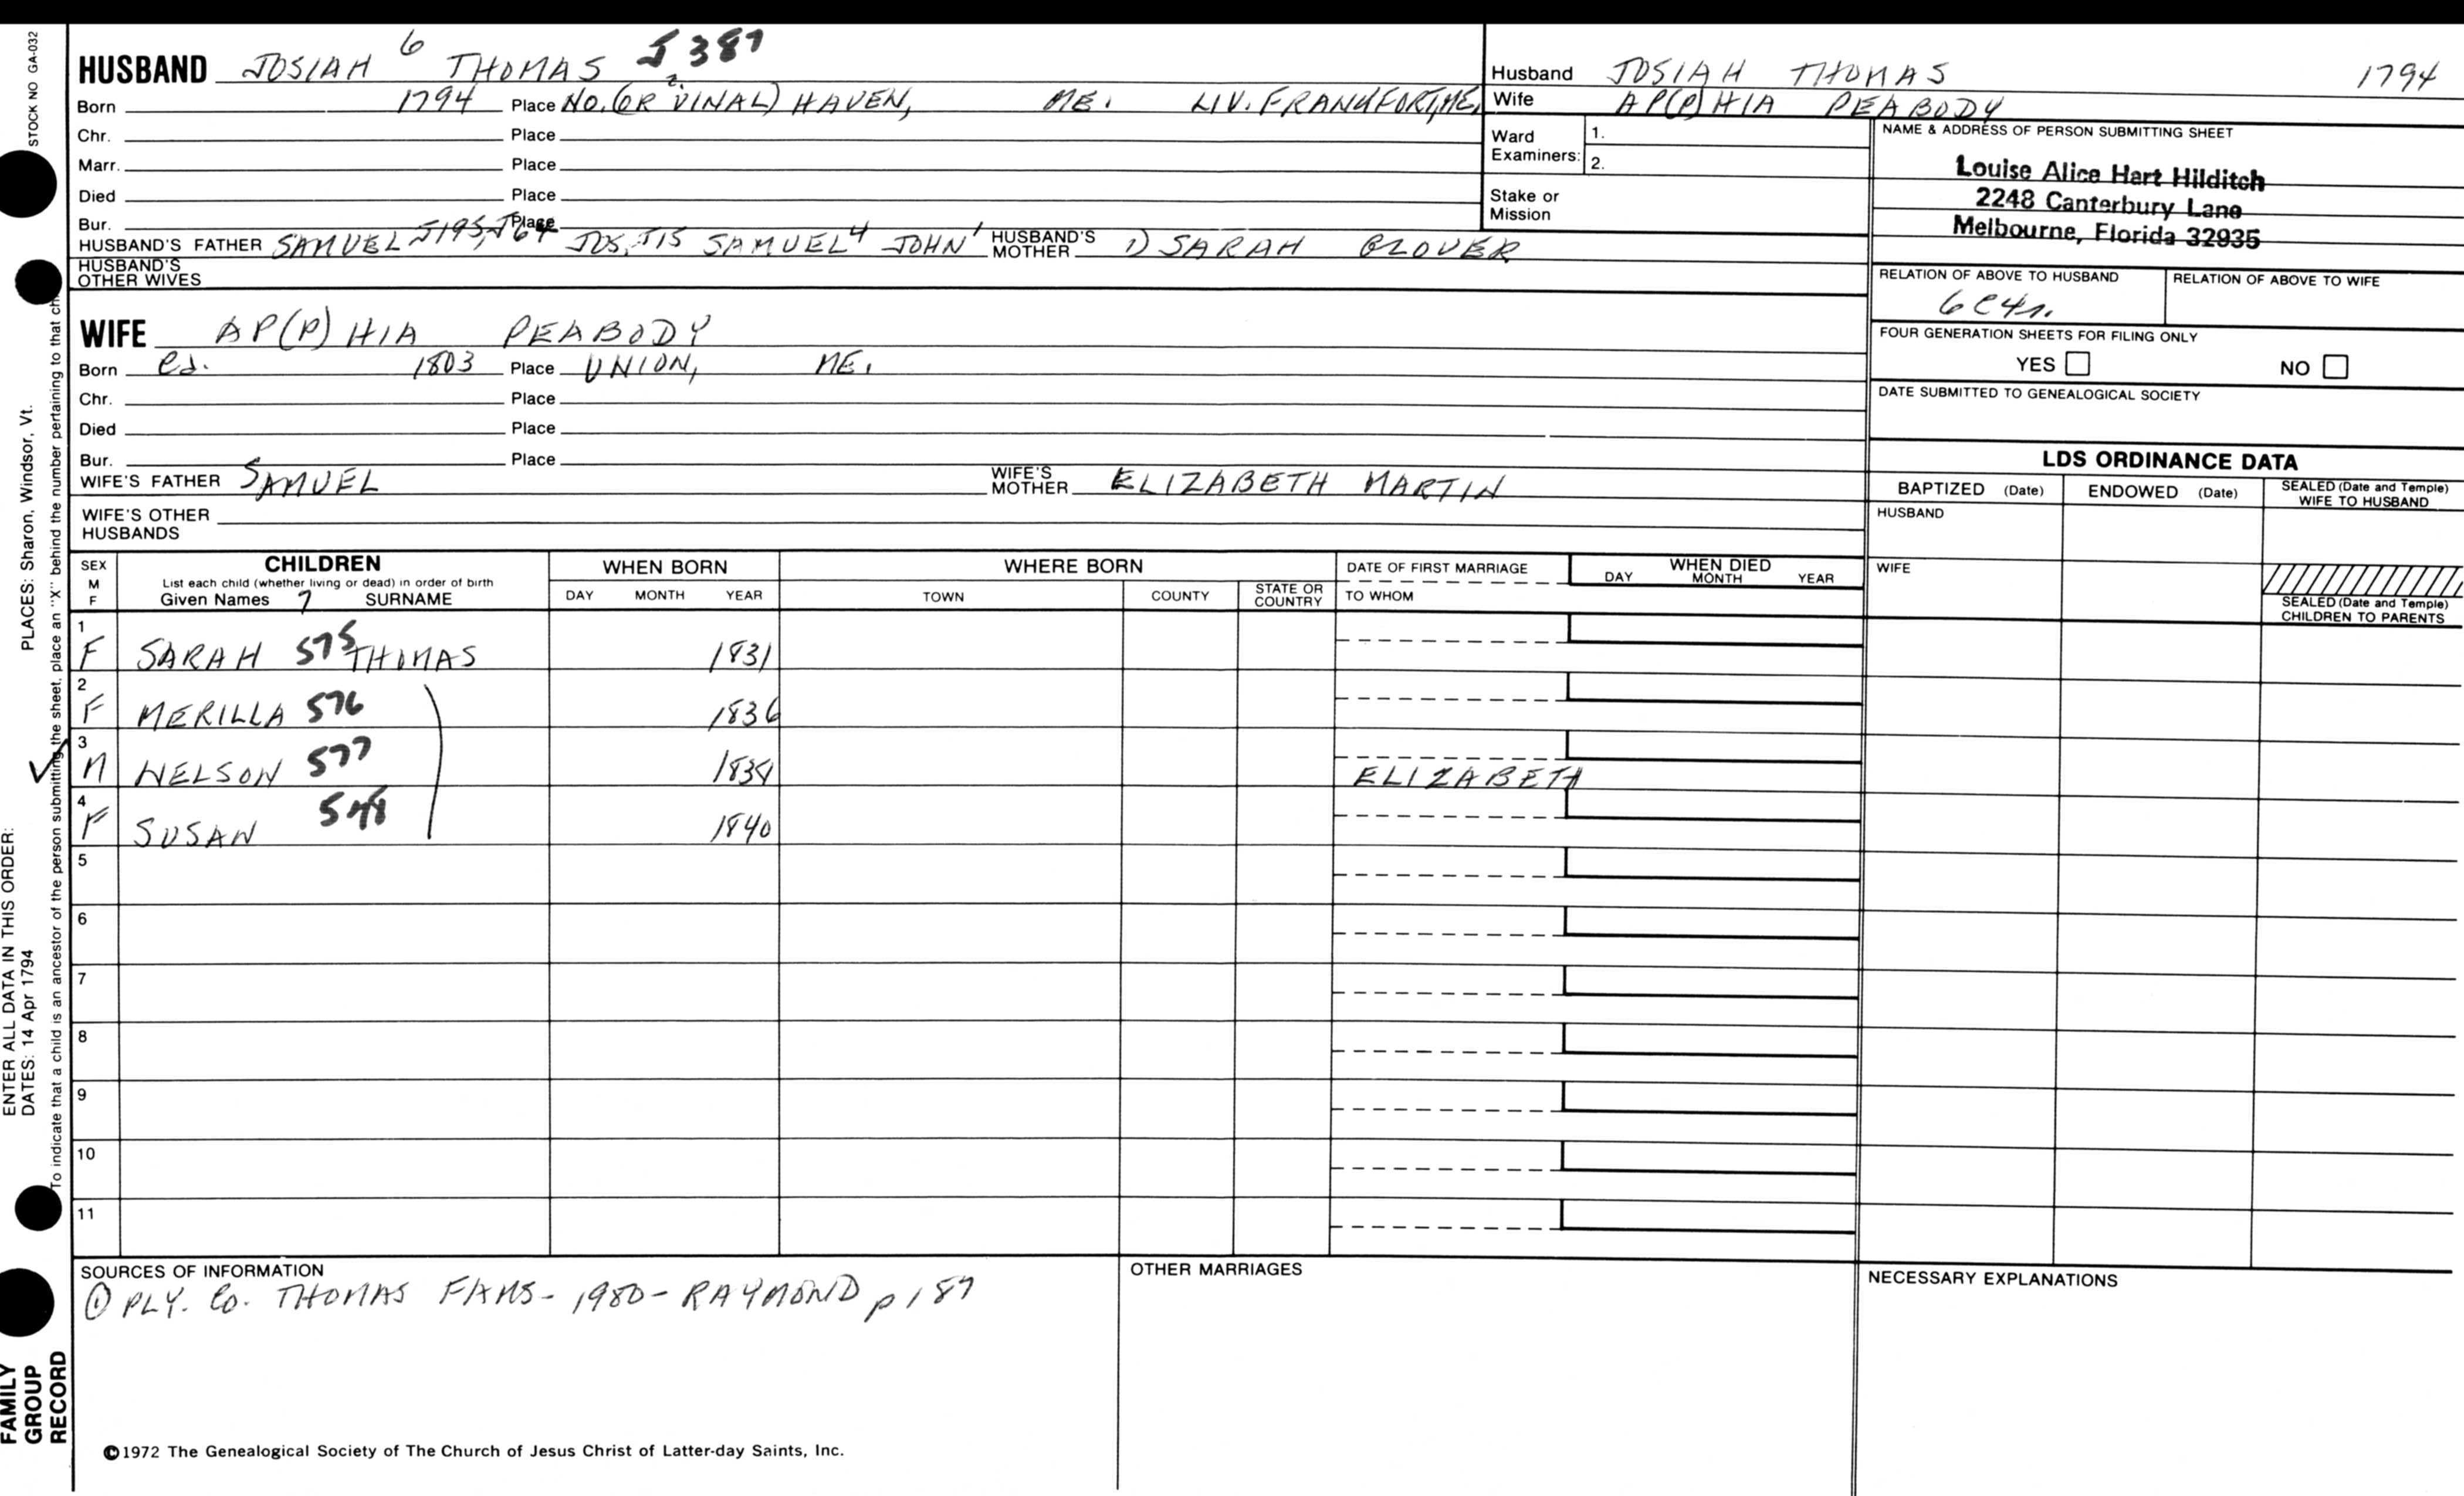 STOCK NO GA-032
HUSBAND JOSIAH 6 THOMAS J387
Born 1794 Place NO. (OR VINAL) HAVEN, ME. LIV. FRANKFORT, ME.
?
Chr. Place
Marr. Place
Died Place
Bur. Place
HUSBAND'S FATHER SAMUEL J195, J64 JOS, J15 SAMUEL4 JOHN1 HUSBAND'S MOTHER 1) SARAH GLOVER
HUSBAND'S OTHER WIVES
WIFE AP(P)HIA PEABODY
Born 1803 Place UNION, ME.
Chr. Place
Died Place
Bur. Place
WIFE'S FATHER SAMUEL WIFE'S MOTHER ELIZABETH MARTIN
WIFE'S OTHER HUSBANDS
Husband JOSIAH THOMAS 1794
Wife AP(P)HIA PEABODY
Ward Examiners: 1.
2.
Stake or Mission
NAME & ADDRESS OF PERSON SUBMITTING SHEET
Louise Alice Hart Hilditch
2248 Canterbury Lane
Melbourne, Florida 32935
RELATION OF ABOVE TO HUSBAND RELATION OF ABOVE TO WIFE
6C4r.
FOUR GENERATION SHEETS FOR FILING ONLY
YES NO
DATE SUBMITTED TO GENEALOGICAL SOCIETY
LDS ORDINANCE DATA
BAPTIZED (Date) ENDOWED (Date) SEALED (Date and Temple) WIFE TO HUSBAND
HUSBAND
WIFE
SEALED (Date and Temple) CHILDREN TO PARENTS
SEX M F CHILDREN WHEN BORN WHERE BORN DATE OF FIRST MARRIAGE WHEN DIED
List each child (whether living or dead) in order of birth
Given Names 7 SURNAME DAY MONTH YEAR TOWN COUNTY STATE OR COUNTRY TO WHOM DAY MONTH YEAR
1 F SARAH 575 THOMAS 1831
2 F MERILLA 576 1836
3 M NELSON 577 ELIZABETH
4 F SUSAN 1840
5
6
7
8
9
10
11
SOURCES OF INFORMATION
① PLY. Co. THOMAS FAMS - 1980 - RAYMOND p 187
OTHER MARRIAGES
NECESSARY EXPLANATIONS
©1972 The Genealogical Society of The Church of Jesus Christ of Latter-day Saints, Inc.
ENTER ALL DATA IN THIS ORDER:
DATES: 14 Apr 1794 PLACES: Sharon, Windsor, Vt.
To indicate that a child is an ancestor of the person submitting the sheet, place an "X" behind the number pertaining to that ch
FAMILY
GROUP
RECORD